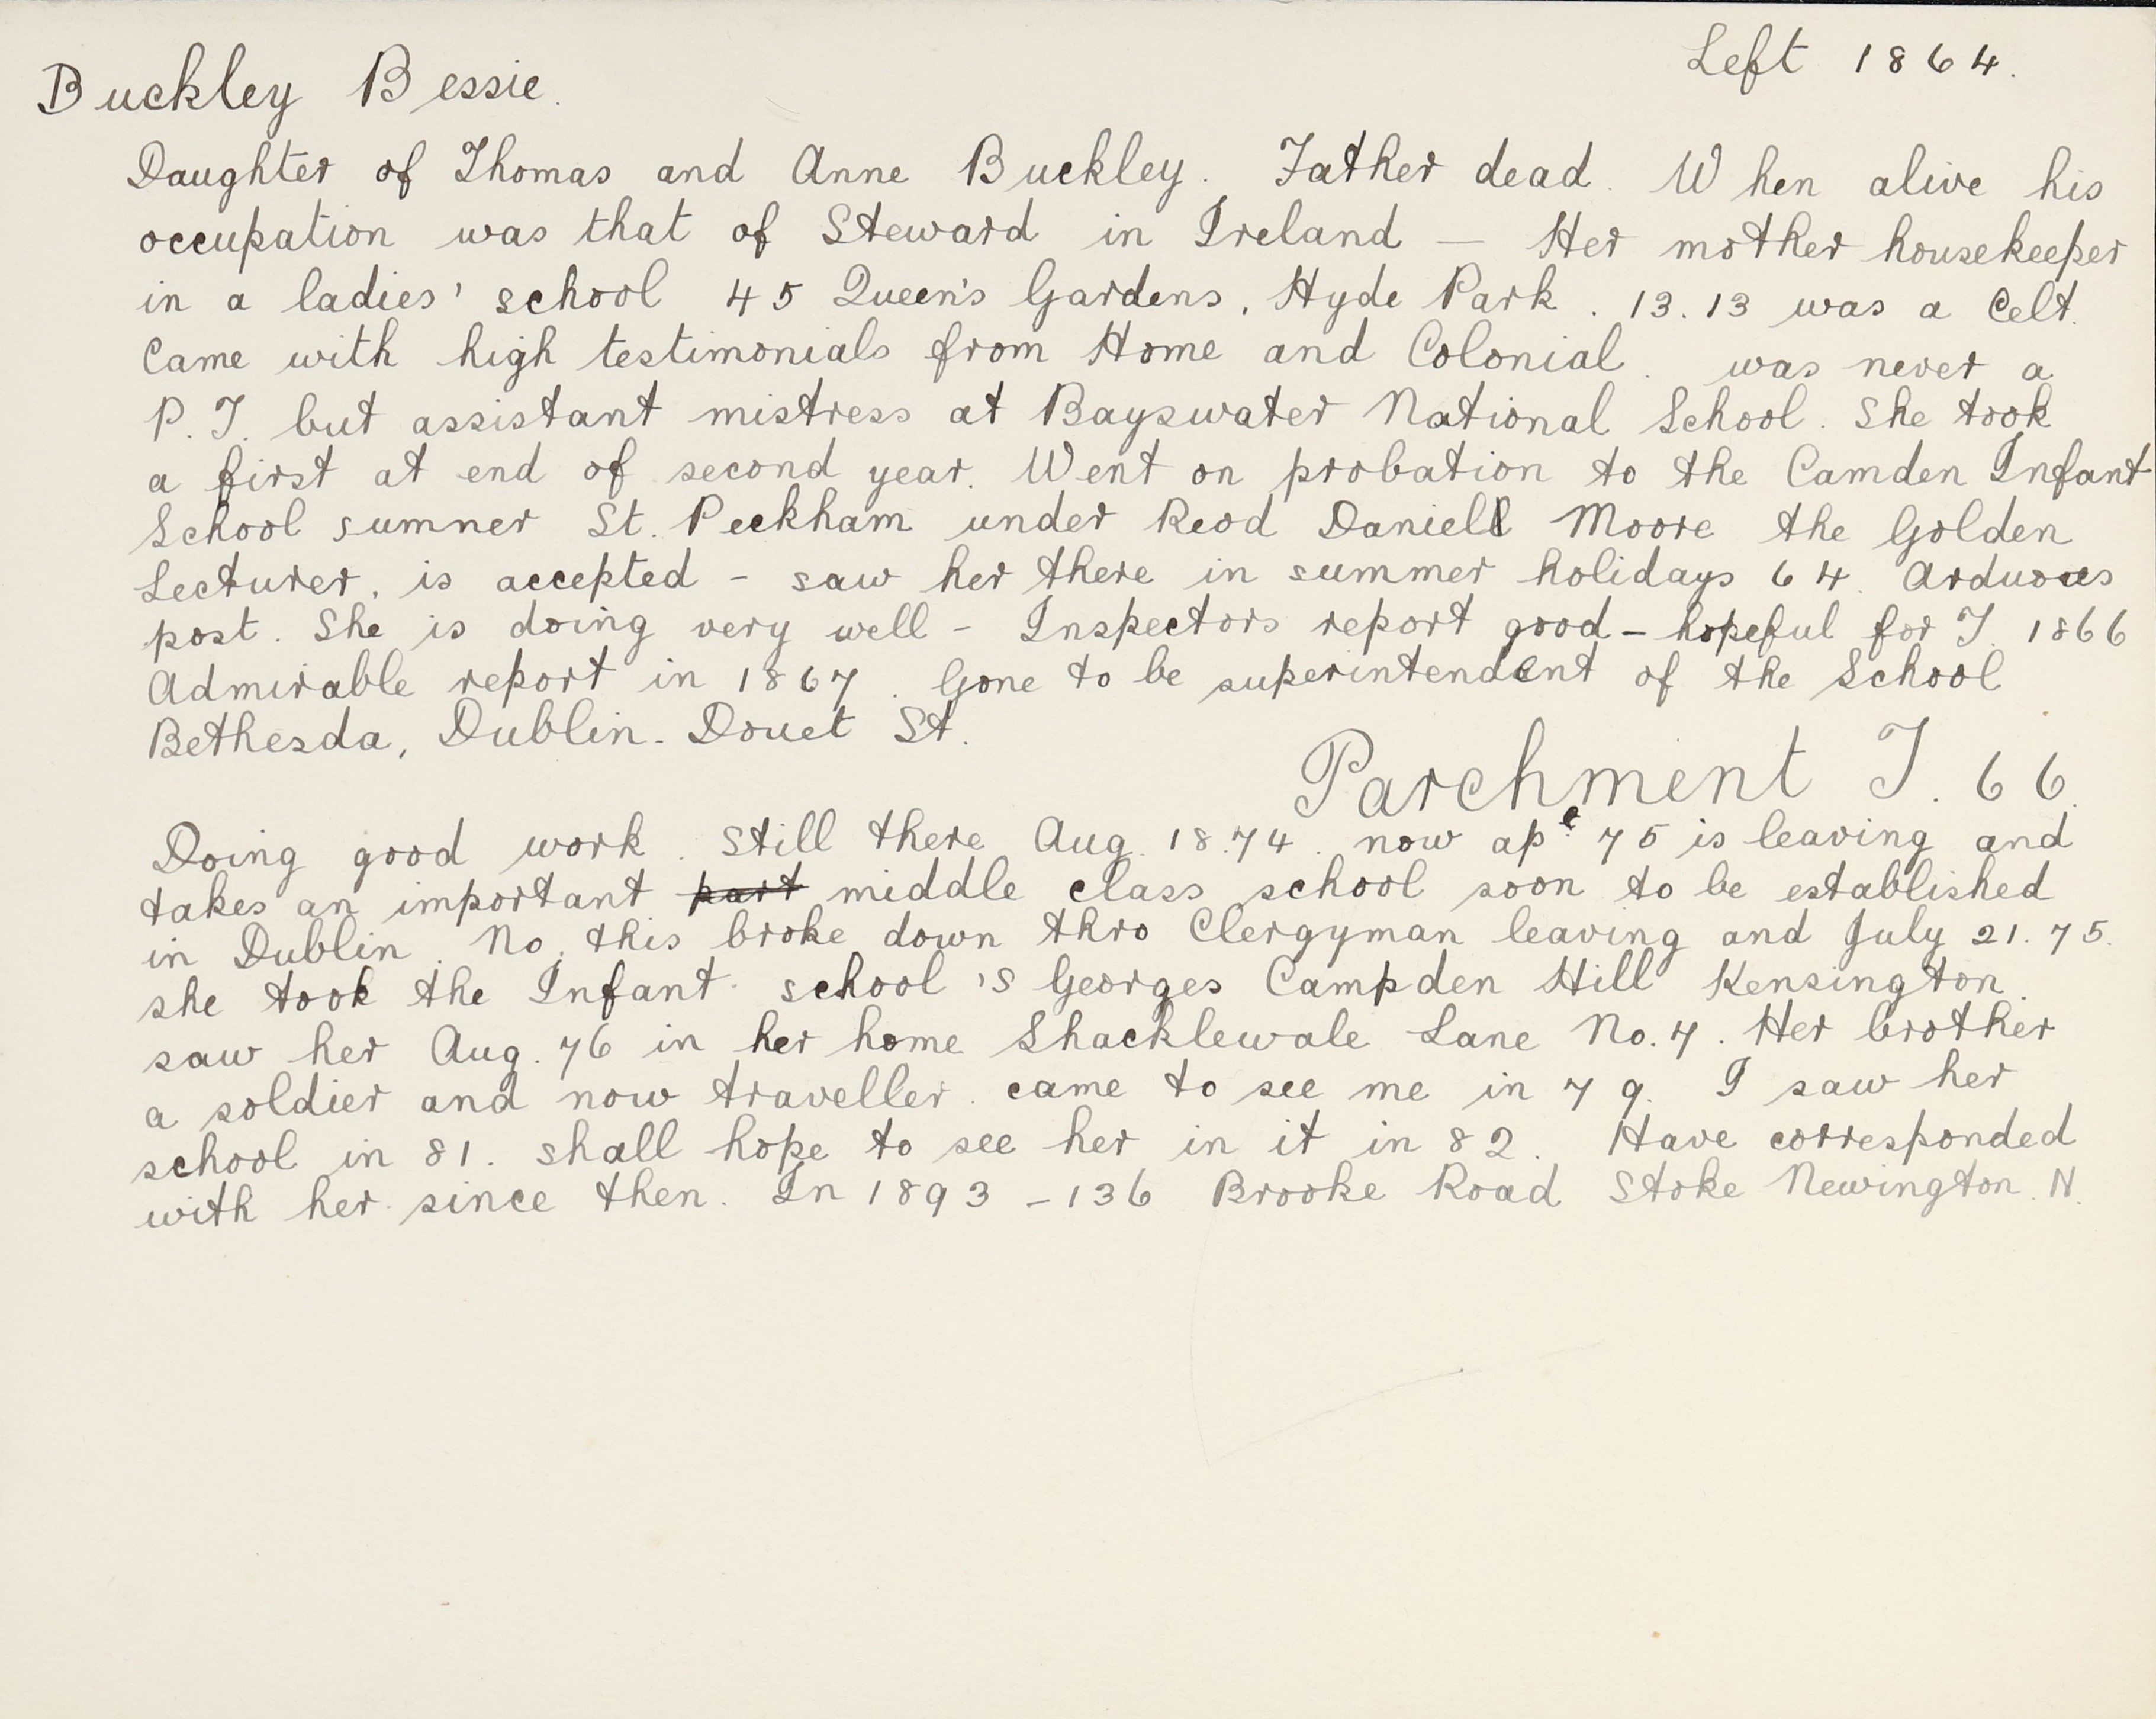 Left 1864.
Buckley Bessie.
Daughter of Thomas and Anne Buckley. Father dead. When alive his
occupation was that of Steward in Ireland — Her mother housekeeper
in a ladies' school 45 Queen's Gardens, Hyde Park. 13.13 was a Celt.
Came with high testimonials from Home and Colonial. was never a
P.T. but assistant mistress at Bayswater National School. She took
a first at end of second year. Went on probation to the Camden Infant
School sumner St. Peckham under Revd Daniell Moore the Golden
Lecturer. is accepted - saw her there in summer holidays 64. Arduous
post. She is doing very well - Inspectors report good - hopeful for T. 1866
Admirable report in 1867. Gone to be superintendent of the School
Bethesda, Dublin. Douet St.
Parchment T. 66.
Doing good work. Still there Aug. 18.74. now ap.e 75 is leaving and
takes an important part middle class school soon to be established
in Dublin. No, this broke down thro Clergyman leaving and July 21.75.
she took the Infant school 's Georges Campden Hill Kensington.
saw her Aug. 76 in her home Shacklewale Lane No.7. Her brother
a soldier and now traveller. came to see me in 79. I saw her
school in 81. shall hope to see her in it in 82. Have corresponded
with her since then. In 1893 - 136 Brooke Road Stoke Newington. N.